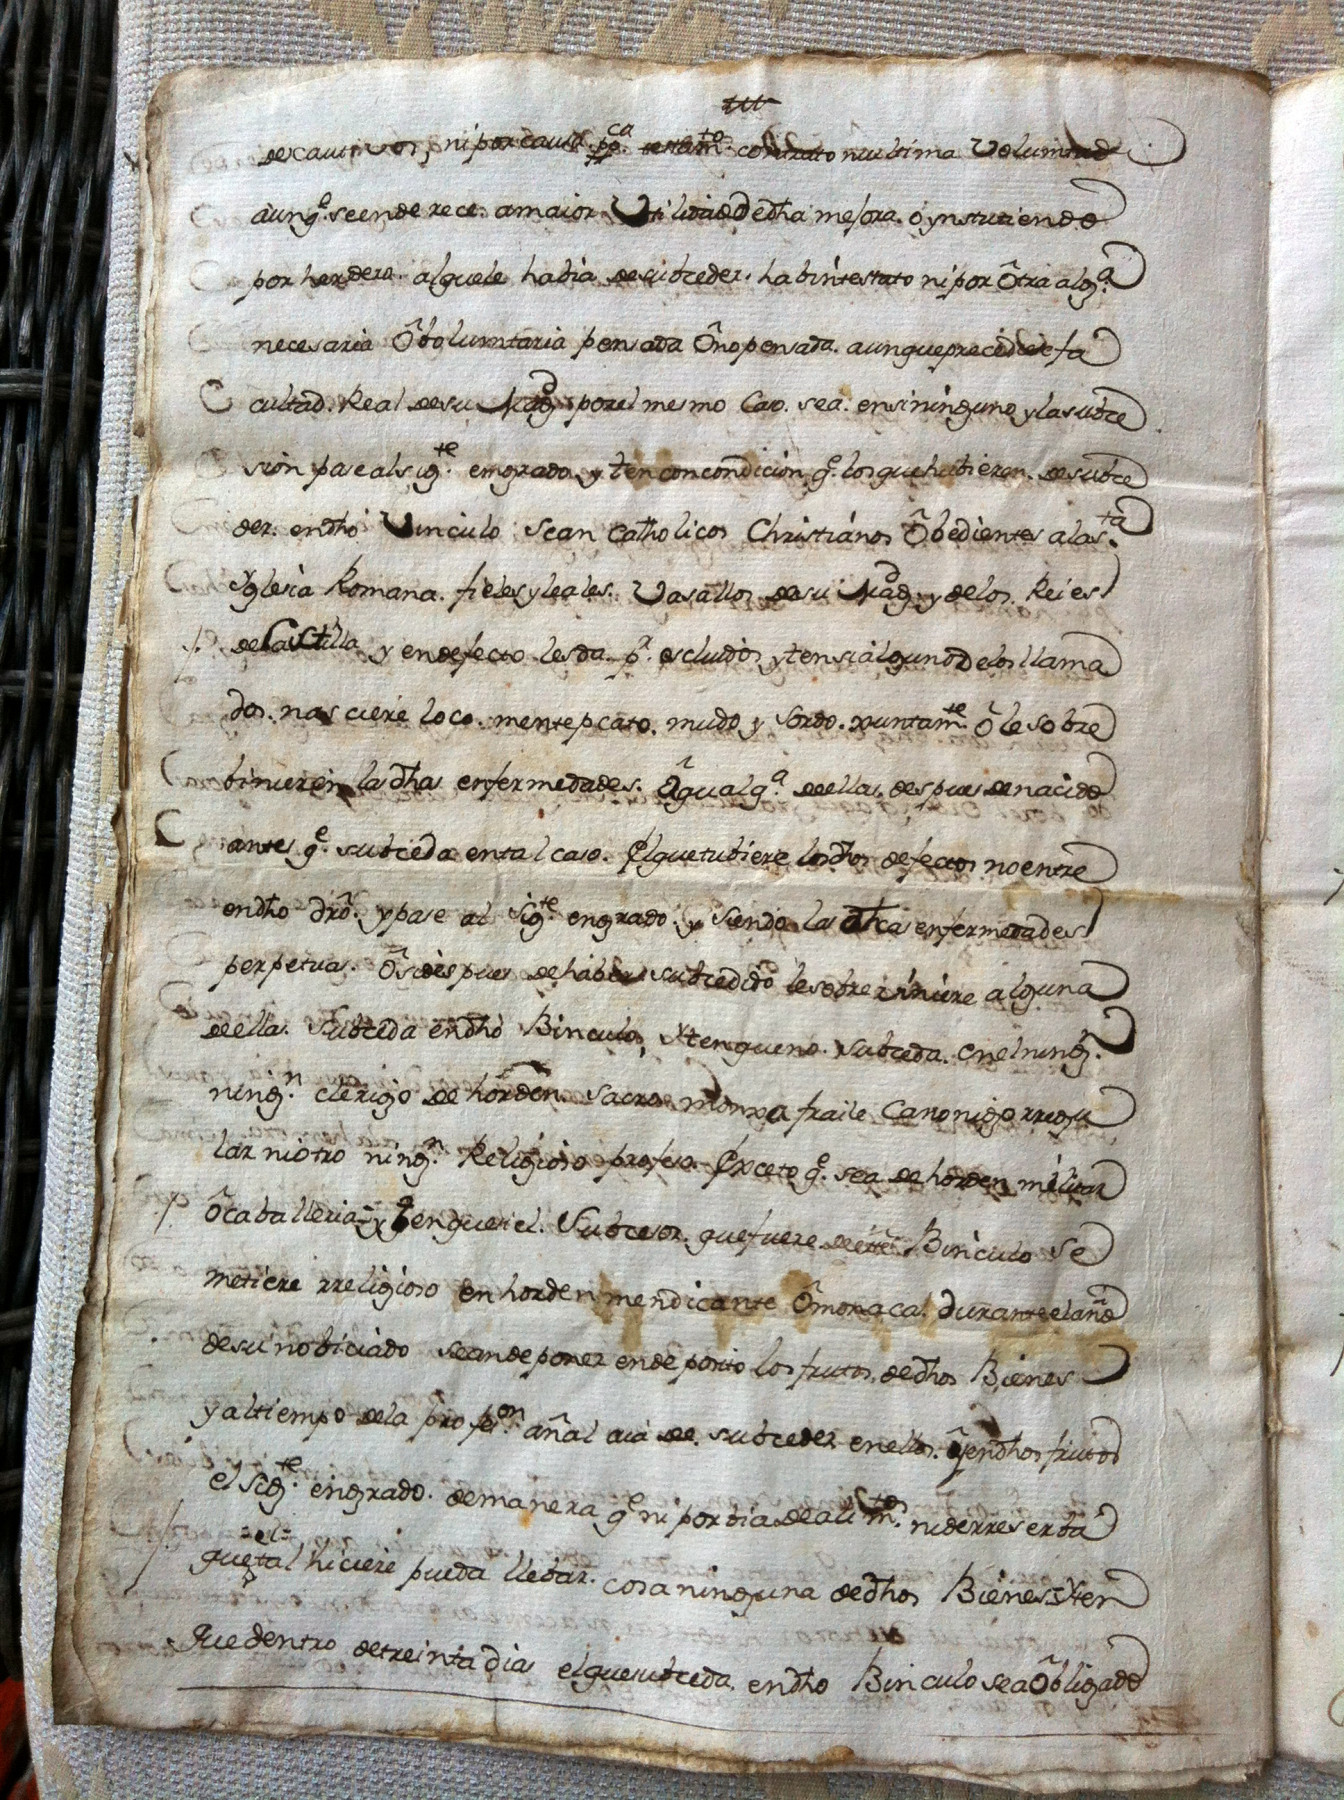 de cautivos, ni por causa pp.ca testam.to contrato ni ultima Voluntad
aunq.e se enderece. a maior. Utilidad de dha mejora. o ynstituiendo
por herdero. alque le habia de subceder. habintestato ni por Otra alg.a
necesaria O boluntaria pensada O no pensada. aunque precediese fa
cultad. Real de su Magd por el mesmo Caso. sea. en si ninguno y la subce
sion pase al sig.te en grado. y ten con condición q.e los que hubieren. de subce
der. en dho Vinculo sean Catholicos Christianos Obedientes a la s.ta
Yglesia Romana. fieles y leales. Vasallos de su Magd. y de los. Reies
de Castilla y en defecto les da. p.r escluidos y ten si alguno de los llama
dos. nasciere loco. mentepcato. mudo y Sordo. xuntam.te O le sobre
binieren las dhas enfermedades. O qualq.a de ellas despues de nacido
antes q.e subceda en tal caso. El que tubiere los dhos defectos no entre
en dho dro. y pase al sig.te en grado. y siendo las dhas enfermedades
perpetuas. O si despues de haber subcedido le sobreviniere alguna
de ellas. Subceda en dho Binculo, Yten que no. subceda. en el ning.
ning.n clerigo de horden sacro monxa fraile Canonigo rregu
lar ni otro ning.n Religioso profeso. Exceto q.e sea de horden militar
O caballeria = y ten que si el. Subcesor. que fuere de este Binculo se
metiere rreligioso en horden mendicante O monacal. durante el año
de su nobiciado se an de poner en deposito los frutos de dhos Bienes
y al tiempo de la profes.on añal aia de. subceder en ellos. y en dhos frutos
el sig.te en grado. de manera q.e ni por bia de alim.tos ni de rreserba
que =el= tal hiciere pueda llebar. cosa ninguna de dhos Bienes = Yten
Que dentro de treinta dias el que subceda en dho Binculo sea Obligado